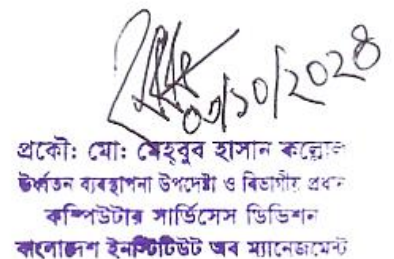 ০৩/১০/২০২৪
প্রকৌ: মো: মেহ্‌বুব হাসান কল্লোল
ঊর্ধ্বতন ব্যবস্থাপনা উপদেষ্টা ও বিভাগীয় প্রধান
কম্পিউটার সার্ভিসেস ডিভিশন
বাংলাদেশ ইনস্টিটিউট অব ম্যানেজমেন্ট